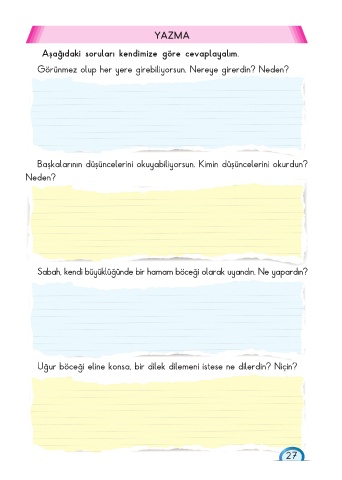 YAZMA
Aşağıdaki soruları kendimize göre cevaplayalım.
Görünmez olup her yere girebiliyorsun. Nereye girerdin? Neden?
Başkalarının düşüncelerini okuyabiliyorsun. Kimin düşüncelerini okurdun?
Neden?
Sabah, kendi büyüklüğünde bir hamam böceği olarak uyandın. Ne yapardın?
Uğur böceği eline konsa, bir dilek dilemeni istese ne dilerdin? Niçin?
27